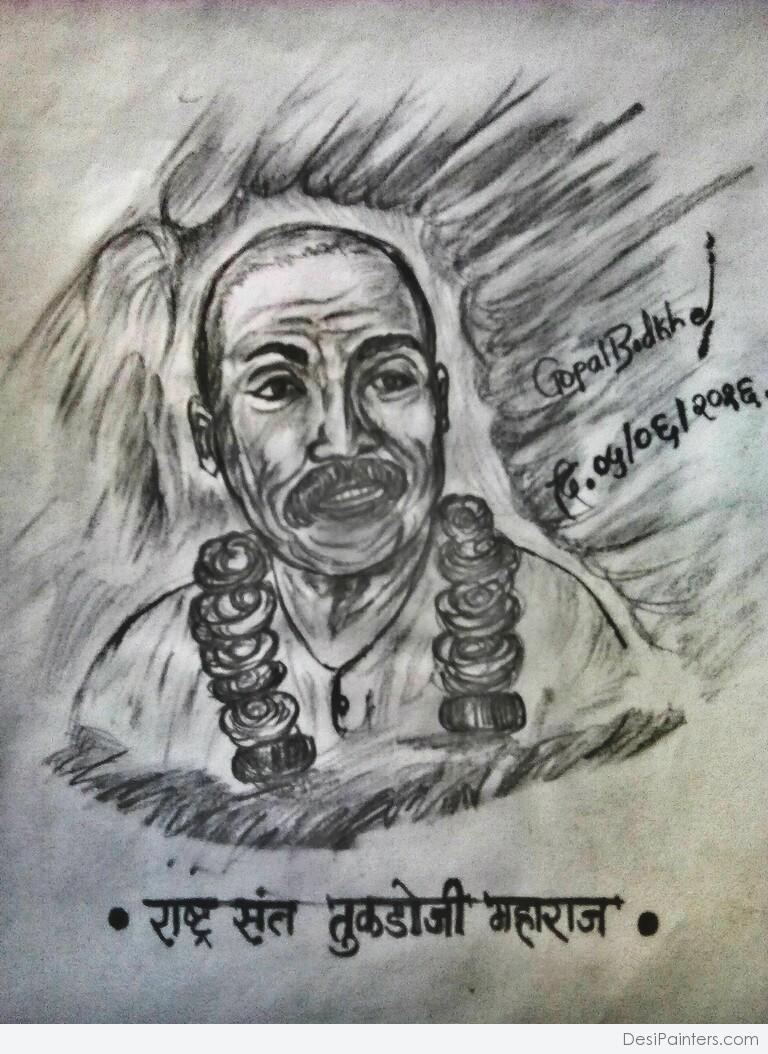 Gopal Bodkhe
दि. ०५/०६/२०१६.
• राष्ट्र संत तुकडोजी महाराज •
DesiPainters.com